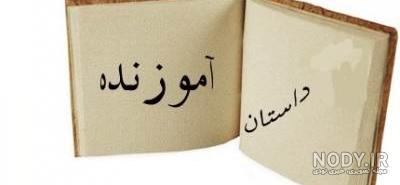 داستان
آموزنده
NODY.IR